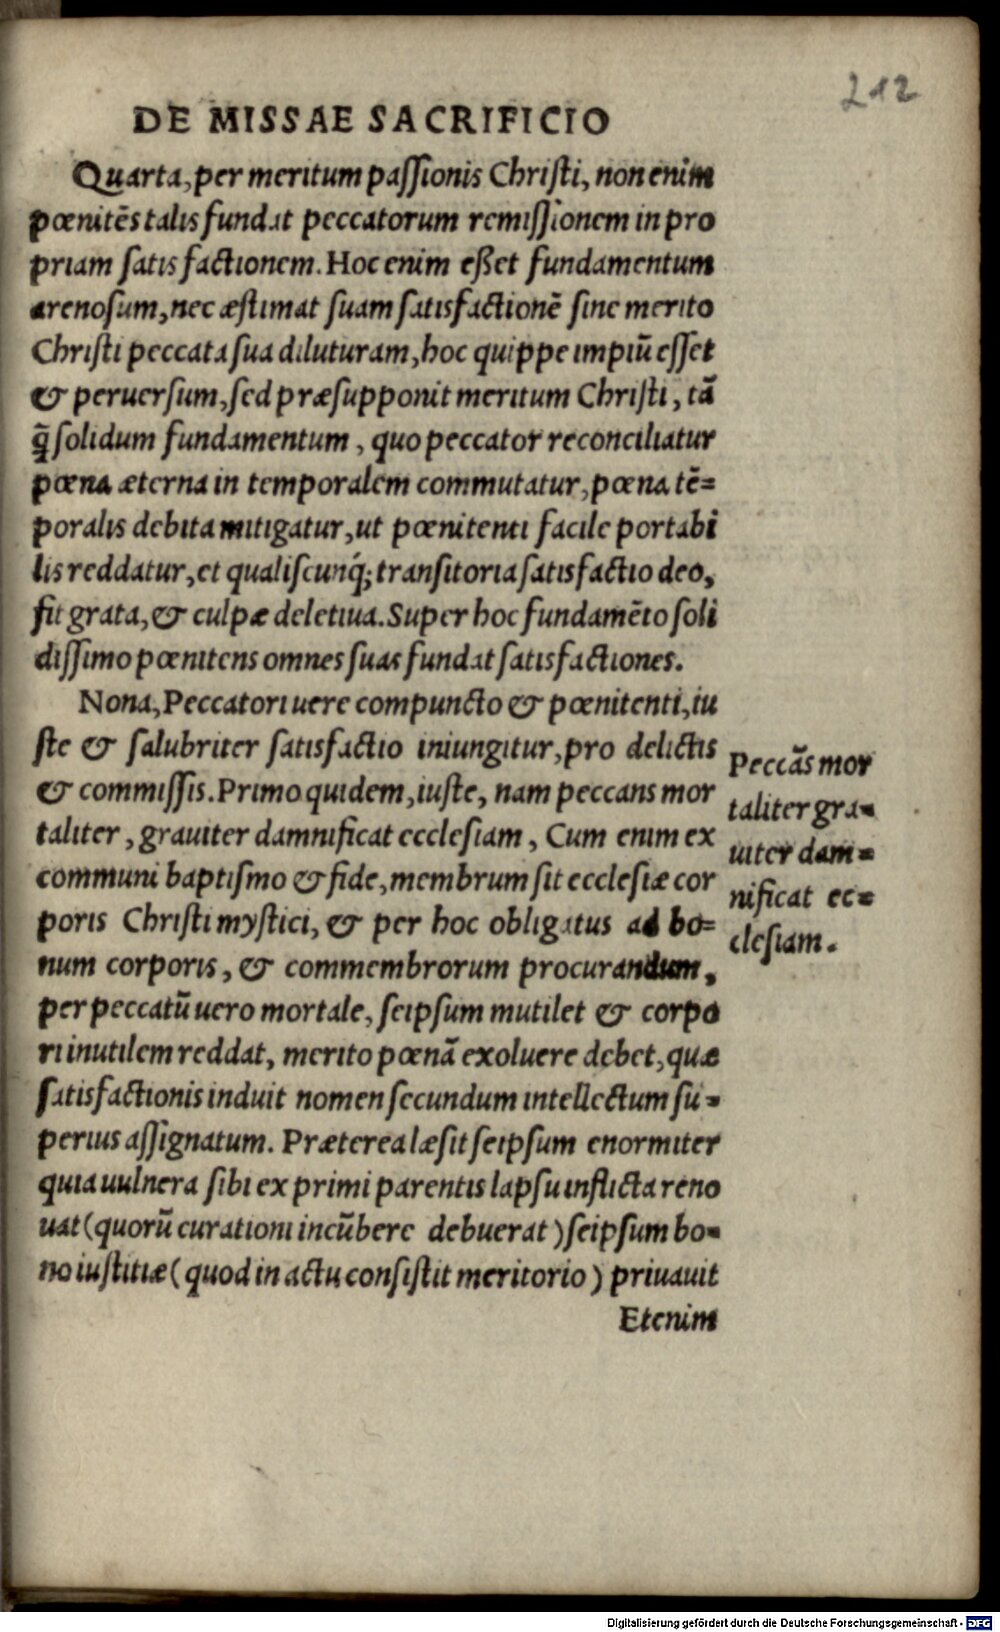 212
DE MISSAE SACRIFICIO
Quarta, per meritum paſſionis Chriſti, non enim
pœnitẽs talis fundat peccatorum remiſſionem in pro
priam ſatisfactionem. Hoc enim eßet fundamentum
arenoſum, nec æſtimat ſuam ſatisfactionẽ ſine merito
Chriſti peccata ſua diluturam, hoc quippe impiũ eſſet
& peruerſum, ſed præſupponit meritum Chriſti, tã
q̃ ſolidum fundamentum, quo peccator reconciliatur
pœna æterna in temporalem commutatur, pœna tẽ=
poralis debita mitigatur, ut pœnitenti facile portabi
lis reddatur, et qualiſcunq́; tranſitoria ſatisfactio deo,
fit grata, & culpæ deletiua. Super hoc fundamẽto ſoli
diſſimo pœnitens omnes ſuas fundat ſatisfactiones.
Nona, Peccatori uere compuncto & pœnitenti, iu
ſte & ſalubriter ſatisfactio iniungitur, pro delictis
& commiſſis. Primo quidem, iuſte, nam peccans mor
taliter, grauiter damnificat eccleſiam, Cum enim ex
communi baptiſmo & fide, membrum ſit eccleſiæ cor
poris Chriſti myſtici, & per hoc obligatus ad bo=
num corporis, & commembrorum procurandum,
per peccatũ uero mortale, ſeipſum mutilet & corpo
ri inutilem reddat, merito pœnã exoluere debet, quæ
ſatisfactionis induit nomen ſecundum intellectum ſu=
perius aſſignatum. Præterea læſit ſeipſum enormiter
quia uulnera ſibi ex primi parentis lapſu inflicta reno
uat (quorũ curationi incũbere debuerat) ſeipſum bo=
no iuſtitiæ (quod in actu conſiſtit meritorio) priuauit
Etenim
Peccãs mor
taliter gra=
uiter dam=
nificat ec=
cleſiam.
Digitalisierung gefördert durch die Deutsche Forschungsgemeinschaft - DFG